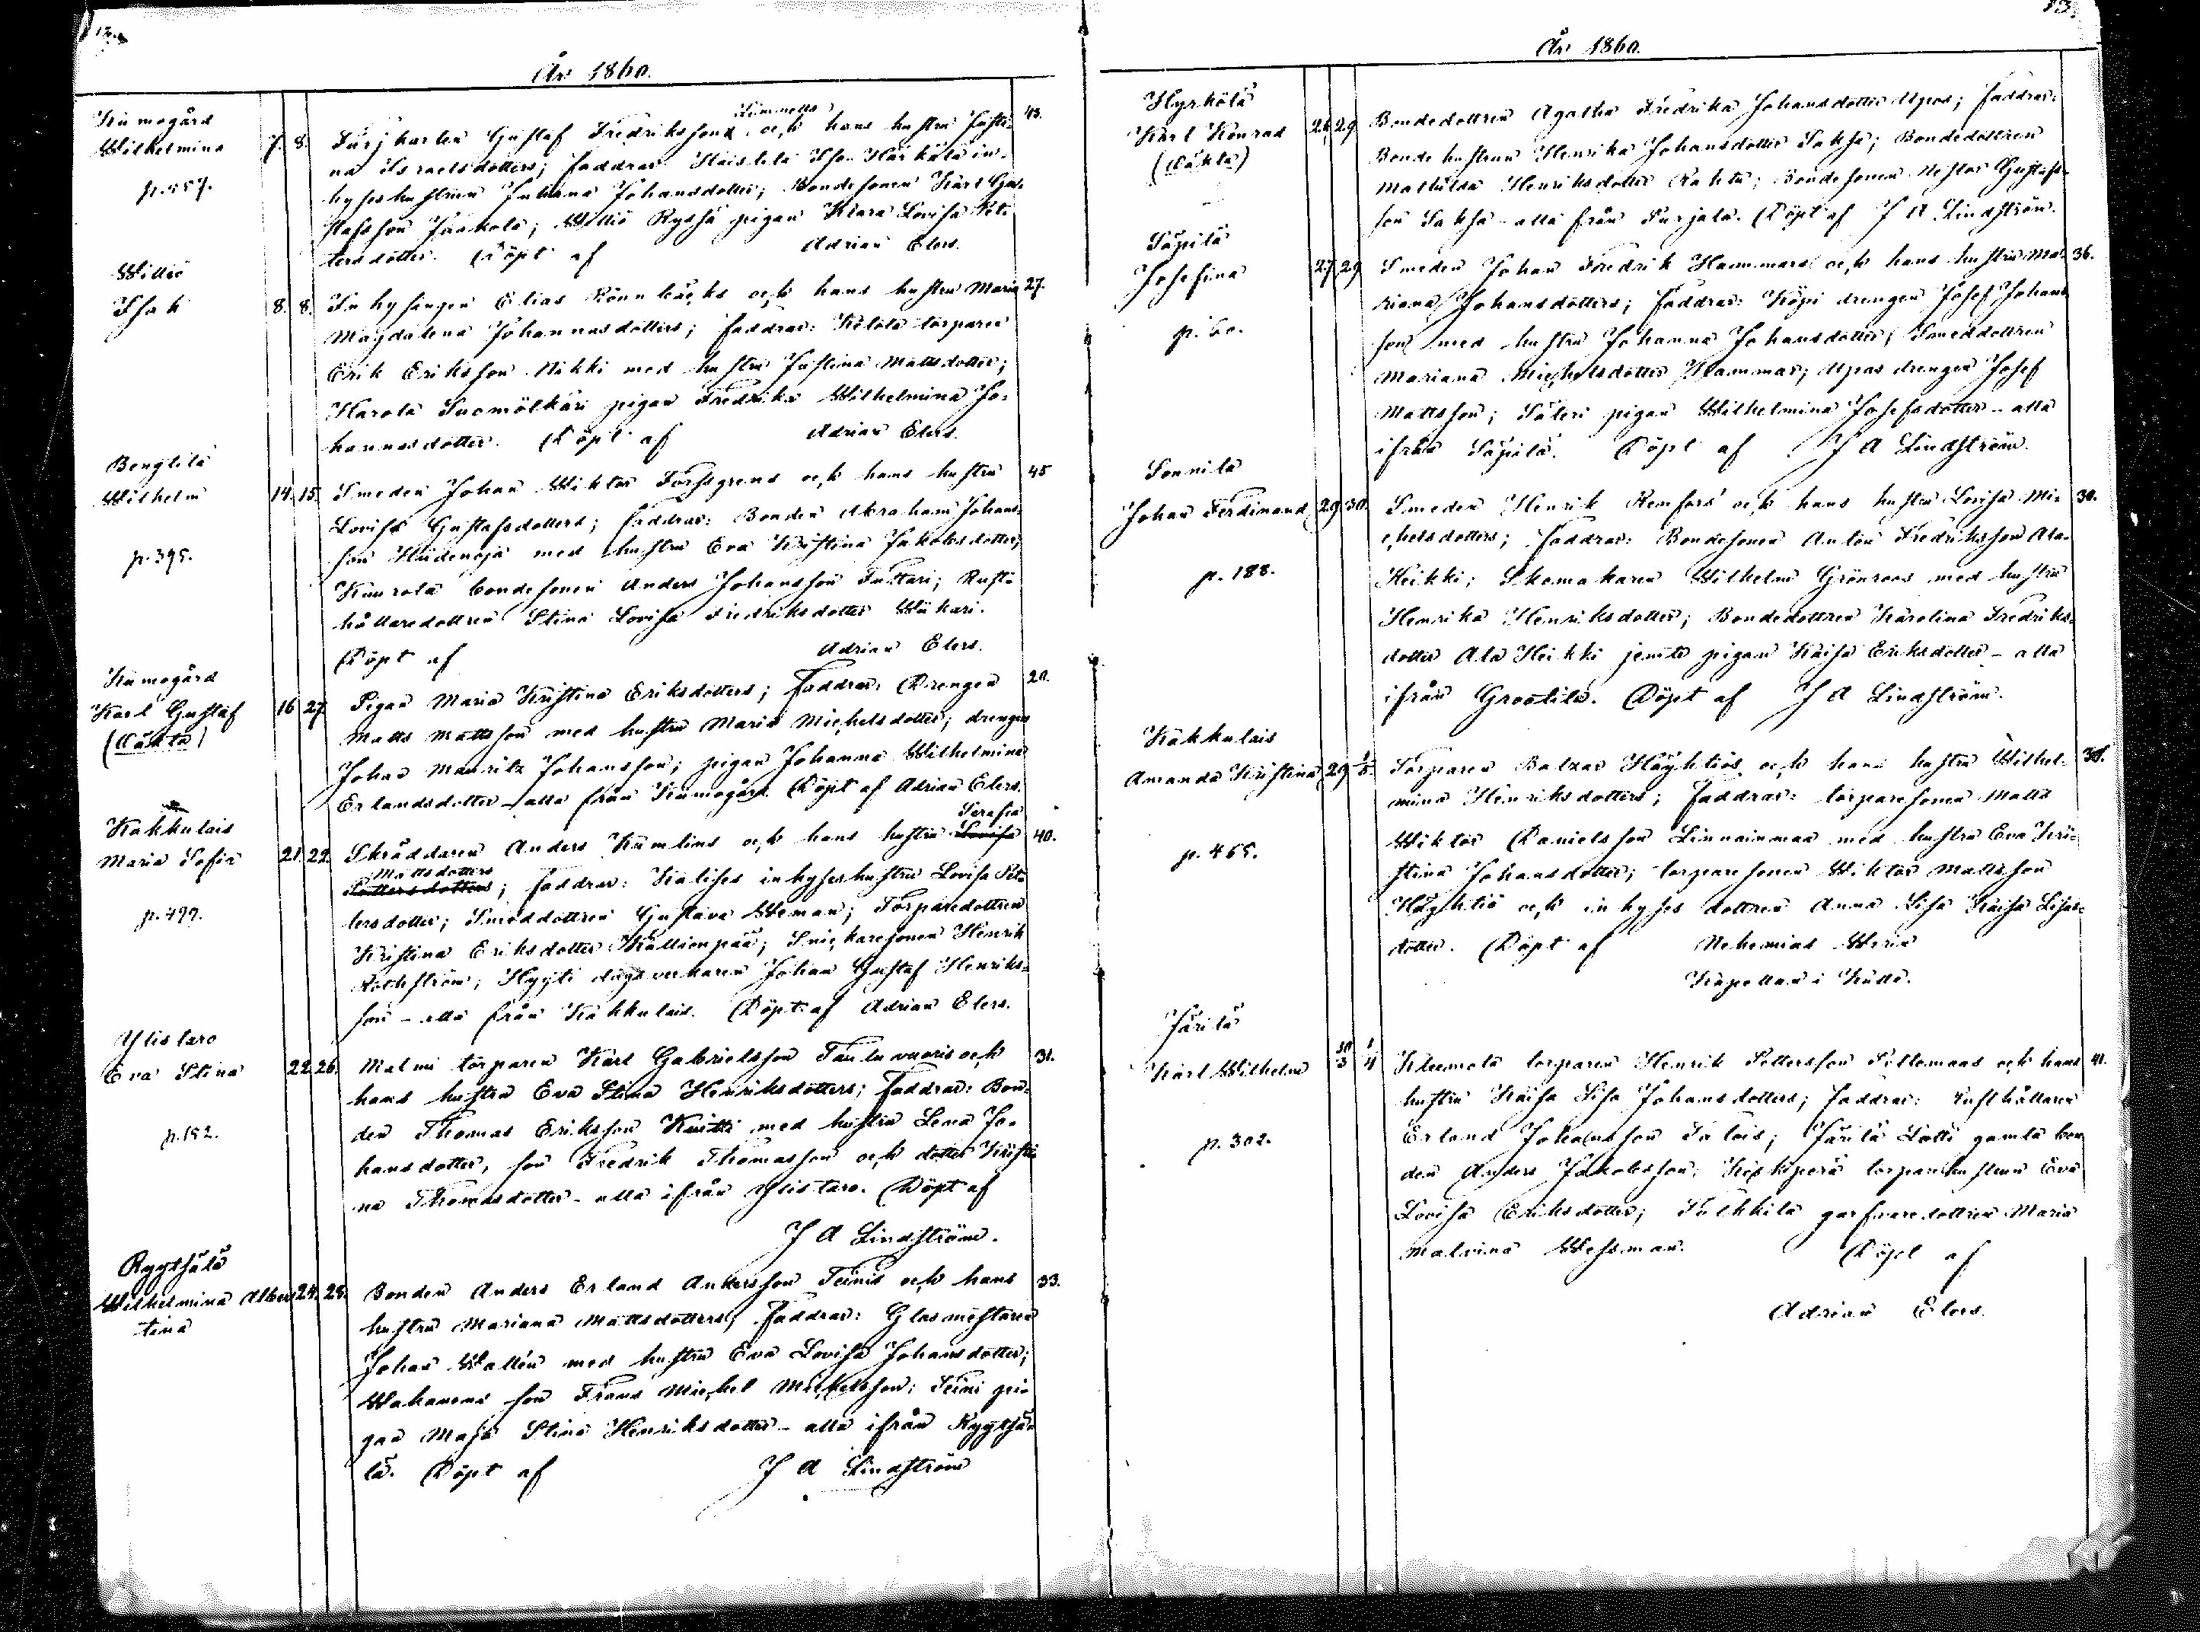 År 1860.
Kumogård
Wilhelmina 7. 8.
p. 457.
Färjkarlen Gustaf Fredrikssons Limnells och hans hustru Justi- 43.
na Israelsdotters; faddrar: Isak in-
hyseshustrun Johana Johansdotter; Bondesonen Karl Gus-
tafsson Jaakola; Willio pigan Klara Lovisa Pet-
tersdotter. Döpt af Adrian Elers.
Willio
Isak 8. 8.
Inhysingen Elias Rönnbäcks och hans hustru Maria 27.
Magdalena Johannesdotters; faddrar: torparen
Erik Eriksson Nikki med hustru Justina Mattsdotter;
Harola Suomölkäri pigan Fredrika Wilhelmina Jo-
hannesdotter. Döpt af Adrian Elers.
Bengtilä
Wilhelm 14. 15.
p. 395.
Smeden Johan Wiktor Forssgrens och hans hustru 45
Lovisa Gustafsdotters; faddrar: Bonden Abraham Johans-
son Hiidenoja med hustru Eva Kristina Jakobsdotter;
Kuurola bondesonen Anders Johansson Tuttari; Rust-
hållaredottren Stina Lovisa Fredriksdotter Wikari.
Döpt af Adrian Elers.
Kumogård
Karl Gustaf 16 27.
(oäkta)
Pigan Maria Kristina Eriksdotters; Faddrar: Drengen 20.
Matts Mattsson med hustru Maria Michelsdotter; drengen
Johan Mauritz Johansson; pigan Johanna Wilhelmina
Erlandsdotter – alla från Kumogård. Döpt af Adrian Elers.
Kakkulais
Maria Sofia 21. 22.
p. 499.
Skräddaren Anders Kumlins och hans hustru Lovisa Serafia 40.
Pettersdotters Mattsdotters; faddrar: inhyseshustru Lovisa Pet-
tersdotter; Smeddottren Gustava Weman; Torparedottren
Kristina Eriksdotter Kallionpää; Snickaresonen Henrik
Rothström; Hyyti dagsverkaren Johan Gustaf Henriks-
son – alla från Kakkulais. Döpt af Adrian Elers.
Ylistaro
Eva Stina 22. 26.
p. 152.
Malmi torparen Karl Gabrielsson Tauluvuoris och 31.
hans hustru Eva Stina Henriksdotters; Faddrar: Bon-
den Thomas Eriksson Knihti med hustru Lena Jo-
hansdotter, son Fredrik Thomasson och dotter Kristi-
na Thomasdotter – alla ifrån Ylistaro. Döpt af
J A Lindström.
Ryytsälä
Wilhelmina Alber- 24. 28.
tina
Bonden Anders Erland Andersson Teinis och hans 33.
hustru Mariana Mattsdotters; Faddrar: Glasmästaren
Johan Wallén med hustru Eva Lovisa Johansdotter;
Wahamens son Frans Michel Michelsson; Teini pi-
gan Maja Stina Henriksdotter – alla ifrån Ryytsä-
lä. Döpt af J A Lindström
13.
År 1860.
Hyrkölä
Karl Konrad 26. 29
(oäkta)
Bondedottren Agatha Fredrika Johansdotter Upos; faddrar:
Bondehustrun Henrika Johansdotter Saksa; Bondedottren
Mathilda Henriksdotter Rahtu; Bondesonen Nestor Gustafs-
son Saksa – alla från Purjala. Döpt af J A Lindström.
Säpilä
Josefina 27. 29
p. 60.
Smeden Johan Fredrik Hammars och hans hustru Ma- 36.
riana Johansdotters; faddrar: Köpi drengen Josef Johans-
son med hustru Johanna Johansdotter; Smeddottren
Mariana Michelsdotter Hammar; Upas drengen Josef
Mattsson; Säteri pigan Wilhelmina Josefsdotter – alla
ifrån Säpilä. Döpt af J A Lindström.
Sonnila
Johan Ferdinand 29 30.
p. 188.
Smeden Henrik Renfors och hans hustru Lovisa Mi- 30.
chelsdotters; Faddrar: Bondesonen Anton Fredriksson Ala-
Heikki; Skomakaren Wilhelm Grönroos med hustru
Henrika Henriksdotter; Bondedottren Karolina Fredriks-
dotter Ala Heikki jemte pigan Kaisa Eriksdotter – alla
ifrån Grootila. Döpt af J A Lindström.
Kakkulais
Amanda Kristina 29 1/5.
p. 465.
Torparen Balzar Häyhtiös och hans hustru Wilhel-
mina Henriksdotters; faddrar: torparesonen Matts
Wiktor Danielsson Linnainmaa med hustru Eva Kri-
stina Johansdotter; torparesonen Wiktor Mattsson
Häyhtiö och inhyses dottren Anna Lisa Kaisa Lisas-
dotter. Döpt af Nehemias Werin
Kapellan i Kulla.
Järilä
Karl Wilhelm 30/3 1/4
p. 302.
Kleemola torparen Henrik Pettersson Peltomaas och hans 41.
hustru Kaisa Lisa Johansdotters; faddrar: Rusthållaren
Erland Johansson Talois; Järilä Lotti gamla bon-
den Anders Jakobsson; torparehustrun Eva
Lovisa Eriksdotter; Pelkkilä garfvaredottren Maria
Malvina Wessman. Döpt af
Adrian Elers.